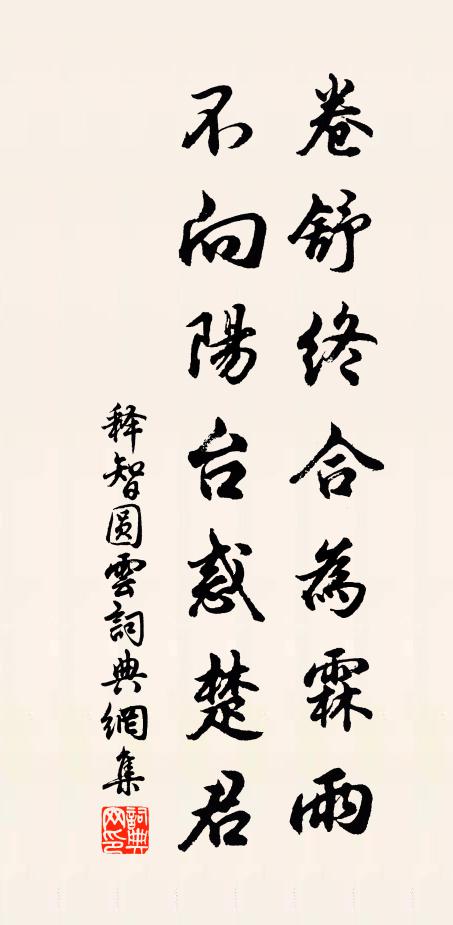 卷舒終合為霖雨
不向陽台惑楚君
释智圓雲詞典網集
詞典網印